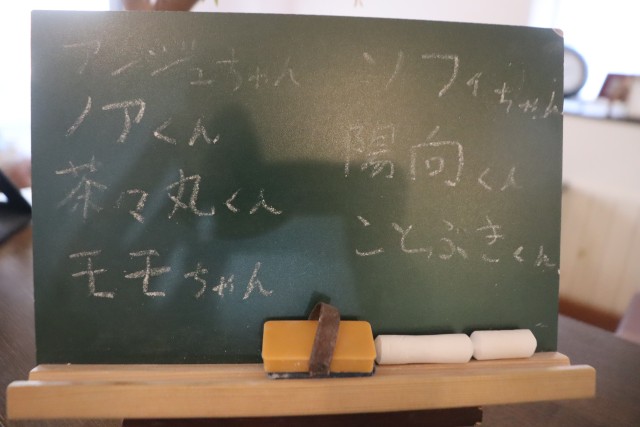 アンジュちゃん
ノアくん
茶々丸くん
モモちゃん
ソフィちゃん
陽向くん
ことぶきくん